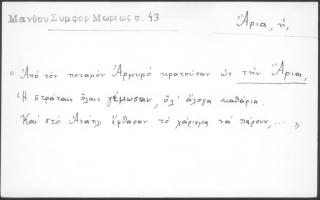 Μανθου Συμφορ Μωρεως σ. 43
Ἄρια, ἡ,
« Ἀπό τόν ποταμόν Ἀρμυρό κρατοῦσαν ὡς τήν Ἄρια,
Ἡ στράταις ὅλαις γέμωσαν, ὅλ' ἄλογα καθάρια.
Καί στό Ἀνάπλι ἔφθασαν τό χάρισμα νά πάρουν, ... »